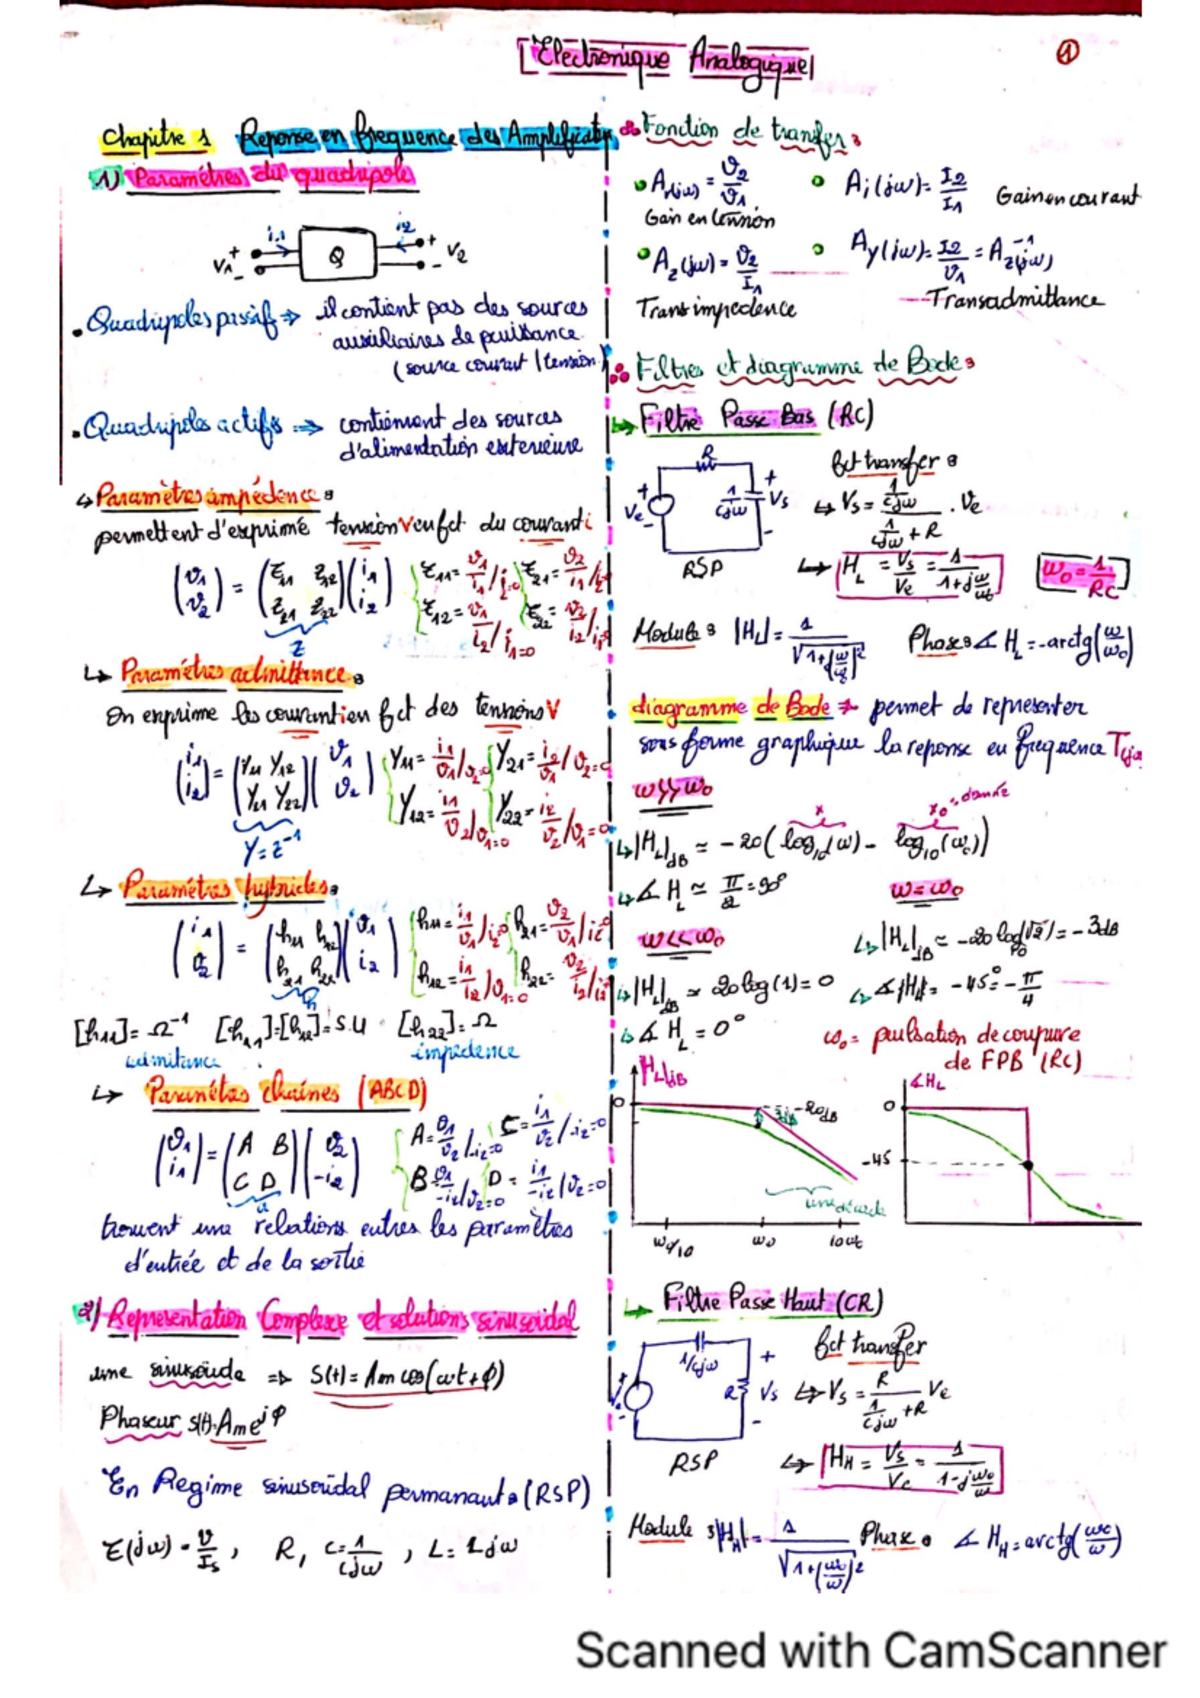 Electronique Analogique
1
Chapitre 1 Reponse en frequence des Amplificat
1) Paramètres du quadripole
i1 i2
V1 + - Q + - V2
. Quadripoles passif => il contient pas des sources
auxiliaires de puissance
(source courant / tension)
. Quadripoles actifs => contiennent des sources
d'alimentation exterieure
↳ Paramètres impédence :
permettent d'exprimé tension V en fct du courant i
(v1 v2) = (Z11 Z12 Z21 Z22)(i1 i2) { Z11 = v1/i1 / i2=0 { Z21 = v2/i1 /
Z12 = v1/i2 / i1=0 Z22 = v2/i2 /
Z
↳ Paramètres admittance :
On exprime les courant i en fct des tensions V
(i1 i2) = (Y11 Y12 Y21 Y22)(v1 v2) { Y11 = i1/v1 / v2=0 { Y21 = i2/v1 / v2=0
Y12 = i1/v2 / v1=0 Y22 = i2/v2 / v1=0
Y = Z⁻¹
↳ Paramètres hybrides :
(i1 v2) = (h11 h12 h21 h22)(v1 i2) { h11 = i1/v1 / i2=0 { h21 = v2/v1 / i2
h12 = i1/i2 / v1=0 h22 = v2/i2 /
h
[h11] = Ω⁻¹ [h21] = [h12] = S.U [h22] = Ω
admitance impedence
↳ Paramètres chaines (ABCD)
(v1 i1) = (A B C D)(v2 -i2) { A = v1/v2 / i2=0 C = i1/v2 / i2=0
B = v1/-i2 / v2=0 D = i1/-i2 / v2=0
a
trouvent une relations entres les paramètres
d'entrée et de la sortie
2) Representation Complexe et solutions sinusoidal
une sinusoide => S(t) = Am cos(ωt + φ)
Phaseur s(t) = Am e^jφ
En Regime sinusoidal permanant : (RSP)
Z(jω) = v/Is , R, C = 1/Cjω , L = Ljω
Fonction de transfer :
A(jω) = v2/v1 Ai(jω) = I2/I1 Gain en courant
Gain en tension
Az(jω) = v2/I1 Ay(jω) = I2/v1 = Az⁻¹(jω)
Transimpedence Transadmittance
Filtres et diagramme de Bode :
Filtre Passe Bas (RC)
R
Ve + - 1/Cjω + - Vs
RSP
fct transfer :
↳ Vs = (1/Cjω)/(1/Cjω + R) . Ve
↳ H_L = Vs/Ve = 1/(1 + jω/ω0) ω0 = 1/RC
Module : |H_L| = 1/√(1 + (ω/ω0)²) Phase : ∡ H_L = -arctg(ω/ω0)
diagramme de Bode → permet de representer
sous forme graphique la reponse en frequence T(jω
ω >> ω0
x x0 = donné
↳ |H_L|dB ≃ -20(log10(ω) - log10(ω0))
↳ ∡ H_L ≃ π/2 = 90° ω = ω0
ω << ω0 ↳ |H_L|dB ≃ -20 log10(√2) = -3dB
↳ |H_L|dB ≃ 20 log(1) = 0 ↳ ∡|H| = -45° = -π/4
↳ ∡ H_L = 0° ω0 = pulsation de coupure
de FPB (RC)
|H_L|dB ∡H_L
0 3dB -20dB 0
-45
une décade
ω0/10 ω0 10ω0
Filtre Passe Haut (CR)
1/Cjω
R + - Vs
RSP
fct transfer
↳ Vs = R/(1/Cjω + R) Ve
↳ H_H = Vs/Ve = 1/(1 - jω0/ω)
Module : |H_H| = 1/√(1 + (ω0/ω)²) Phase : ∡ H_H = arctg(ω0/ω)
Scanned with CamScanner